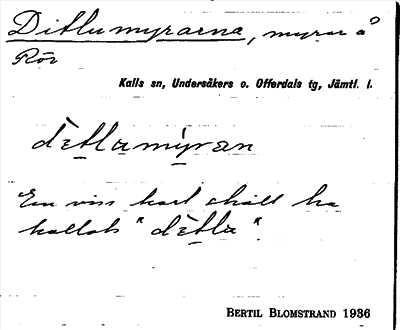 Ditlumyrarna, myrar å
Rör
Kalls sn, Undersåkers o. Offerdals tg, Jämtl. l.
dètlamýran
En viss karl skall ha
kallats "dètla".
BERTIL BLOMSTRAND 1936